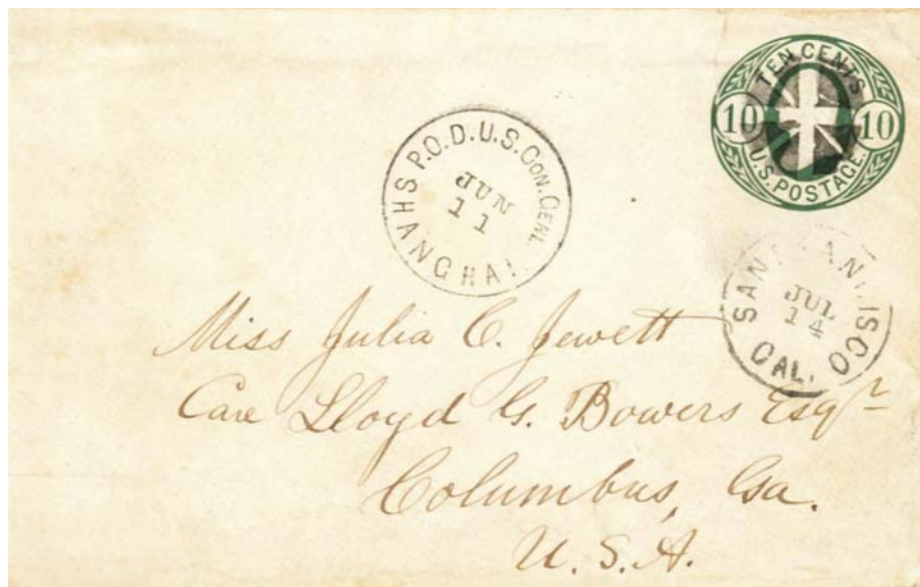 TEN CENTS
10 10
U.S. POSTAGE.
SHANGHAI P.O.D.U.S. CON. GENL.
JUN
11
SAN FRANCISCO
JUL
14
CAL.
Miss Julia C. Jewett
Care Lloyd G. Bowers Esqr
Columbus, Ga.
U.S.A.